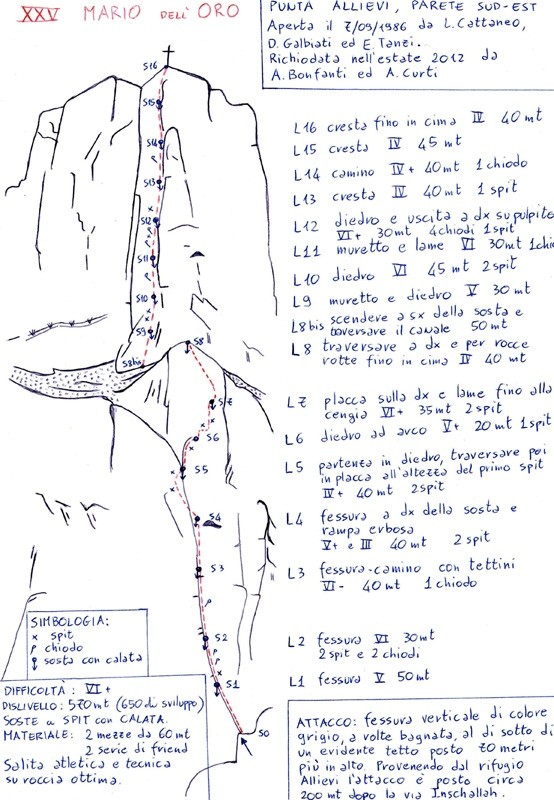 XXV MARIO DELL'ORO
PUNTA ALLIEVI, PARETE SUD-EST
Aperta il 7/09/1986 da L. Cattaneo,
D. Galbiati ed E. Tanzi.
Richiodata nell'estate 2012 da
A. Bonfanti ed A. Curti
L16 cresta fino in cima IV 40 mt
L15 cresta IV 45 mt
L14 camino IV+ 40mt 1 chiodo
L13 cresta IV 40 mt 1 spit
L12 diedro e uscita a dx su pulpito
VI+ 30mt 4 chiodi 1 spit
L11 muretto e lame VI 30mt 1 chi
L10 diedro VI 45 mt 2 spit
L9 muretto e diedro V 30 mt
L8bis scendere a sx della sosta e
traversare il canale 50 mt
L8 traversare a dx e per rocce
rotte fino in cima IV 40 mt
L7 placca sulla dx e lame fino alla
cengia VI+ 35mt 2 spit
L6 diedro ad arco V+ 20mt 1 spit
L5 partenza in diedro, traversare poi
in placca all'altezza del primo spit
IV+ 40mt 2 spit
L4 fessura a dx della sosta e
rampa erbosa
V+ e III 40 mt 2 spit
L3 fessura-camino con tettini
VI- 40 mt 1 chiodo
L2 fessura VI 30mt
2 spit e 2 chiodi
L1 fessura V 50 mt
S16
S15
S14
S13
S12
S11
S10
S9
S8bis
S8
S7
S6
S5
S4
S3
S2
S1
S0
SIMBOLOGIA:
x spit
chiodo
sosta con calata
DIFFICOLTÀ: VI+
DISLIVELLO: 570mt (650 di sviluppo)
SOSTE a SPIT con CALATA.
MATERIALE: 2 mezze da 60mt
2 serie di friend
Salita atletica e tecnica
su roccia ottima.
ATTACCO: fessura verticale di colore
grigio, a volte bagnata, al di sotto di
un evidente tetto posto 70 metri
più in alto. Provenendo dal rifugio
Allievi l'attacco è posto circa
200 mt dopo la via Inschallah.